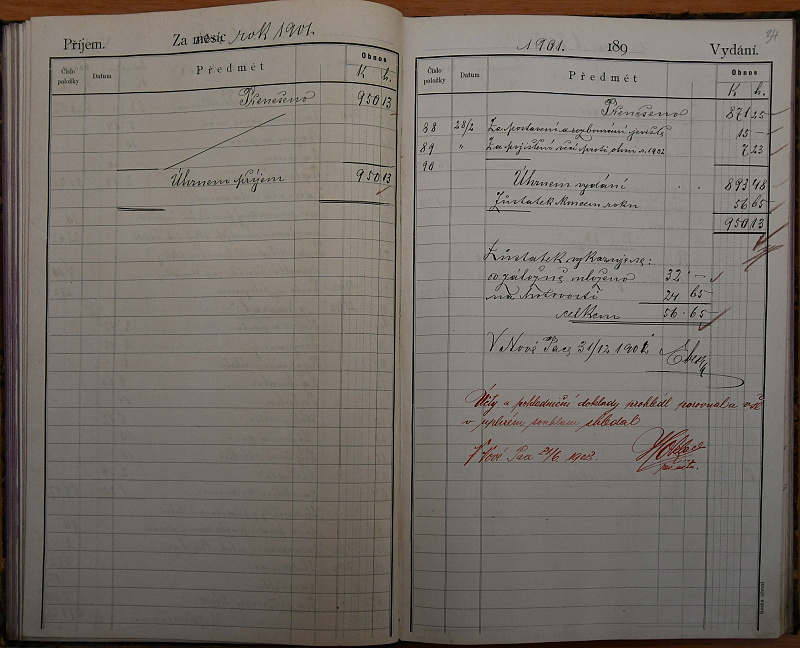 Příjem. Za měsíc rok 1901.
Číslo položky Datum Předmět Obnos
K h.
Přenešeno 950 13
Úhrnem příjem 950 13
34
1901. 189 Vydání.
Číslo položky Datum Předmět Obnos
K h.
Přenešeno 871 25
88 28/2 Za postavení a rozbourání jeviště 15 —
89 " Za pojištění věcí proti ohni r. 1902 7 23
90
Úhrnem vydání . . 893 48
Zůstatek koncem roku 56 65
950 13
Zůstatek vykazuje se:
v záložně uloženo 32 —
na hotovosti 24 65
celkem 56 65
V Nové Pace 31/12 1901
Účty a pokladniční doklady prohlédl porovnal a vše
v úplném souhlasu shledal
V Nové Pace 1902.